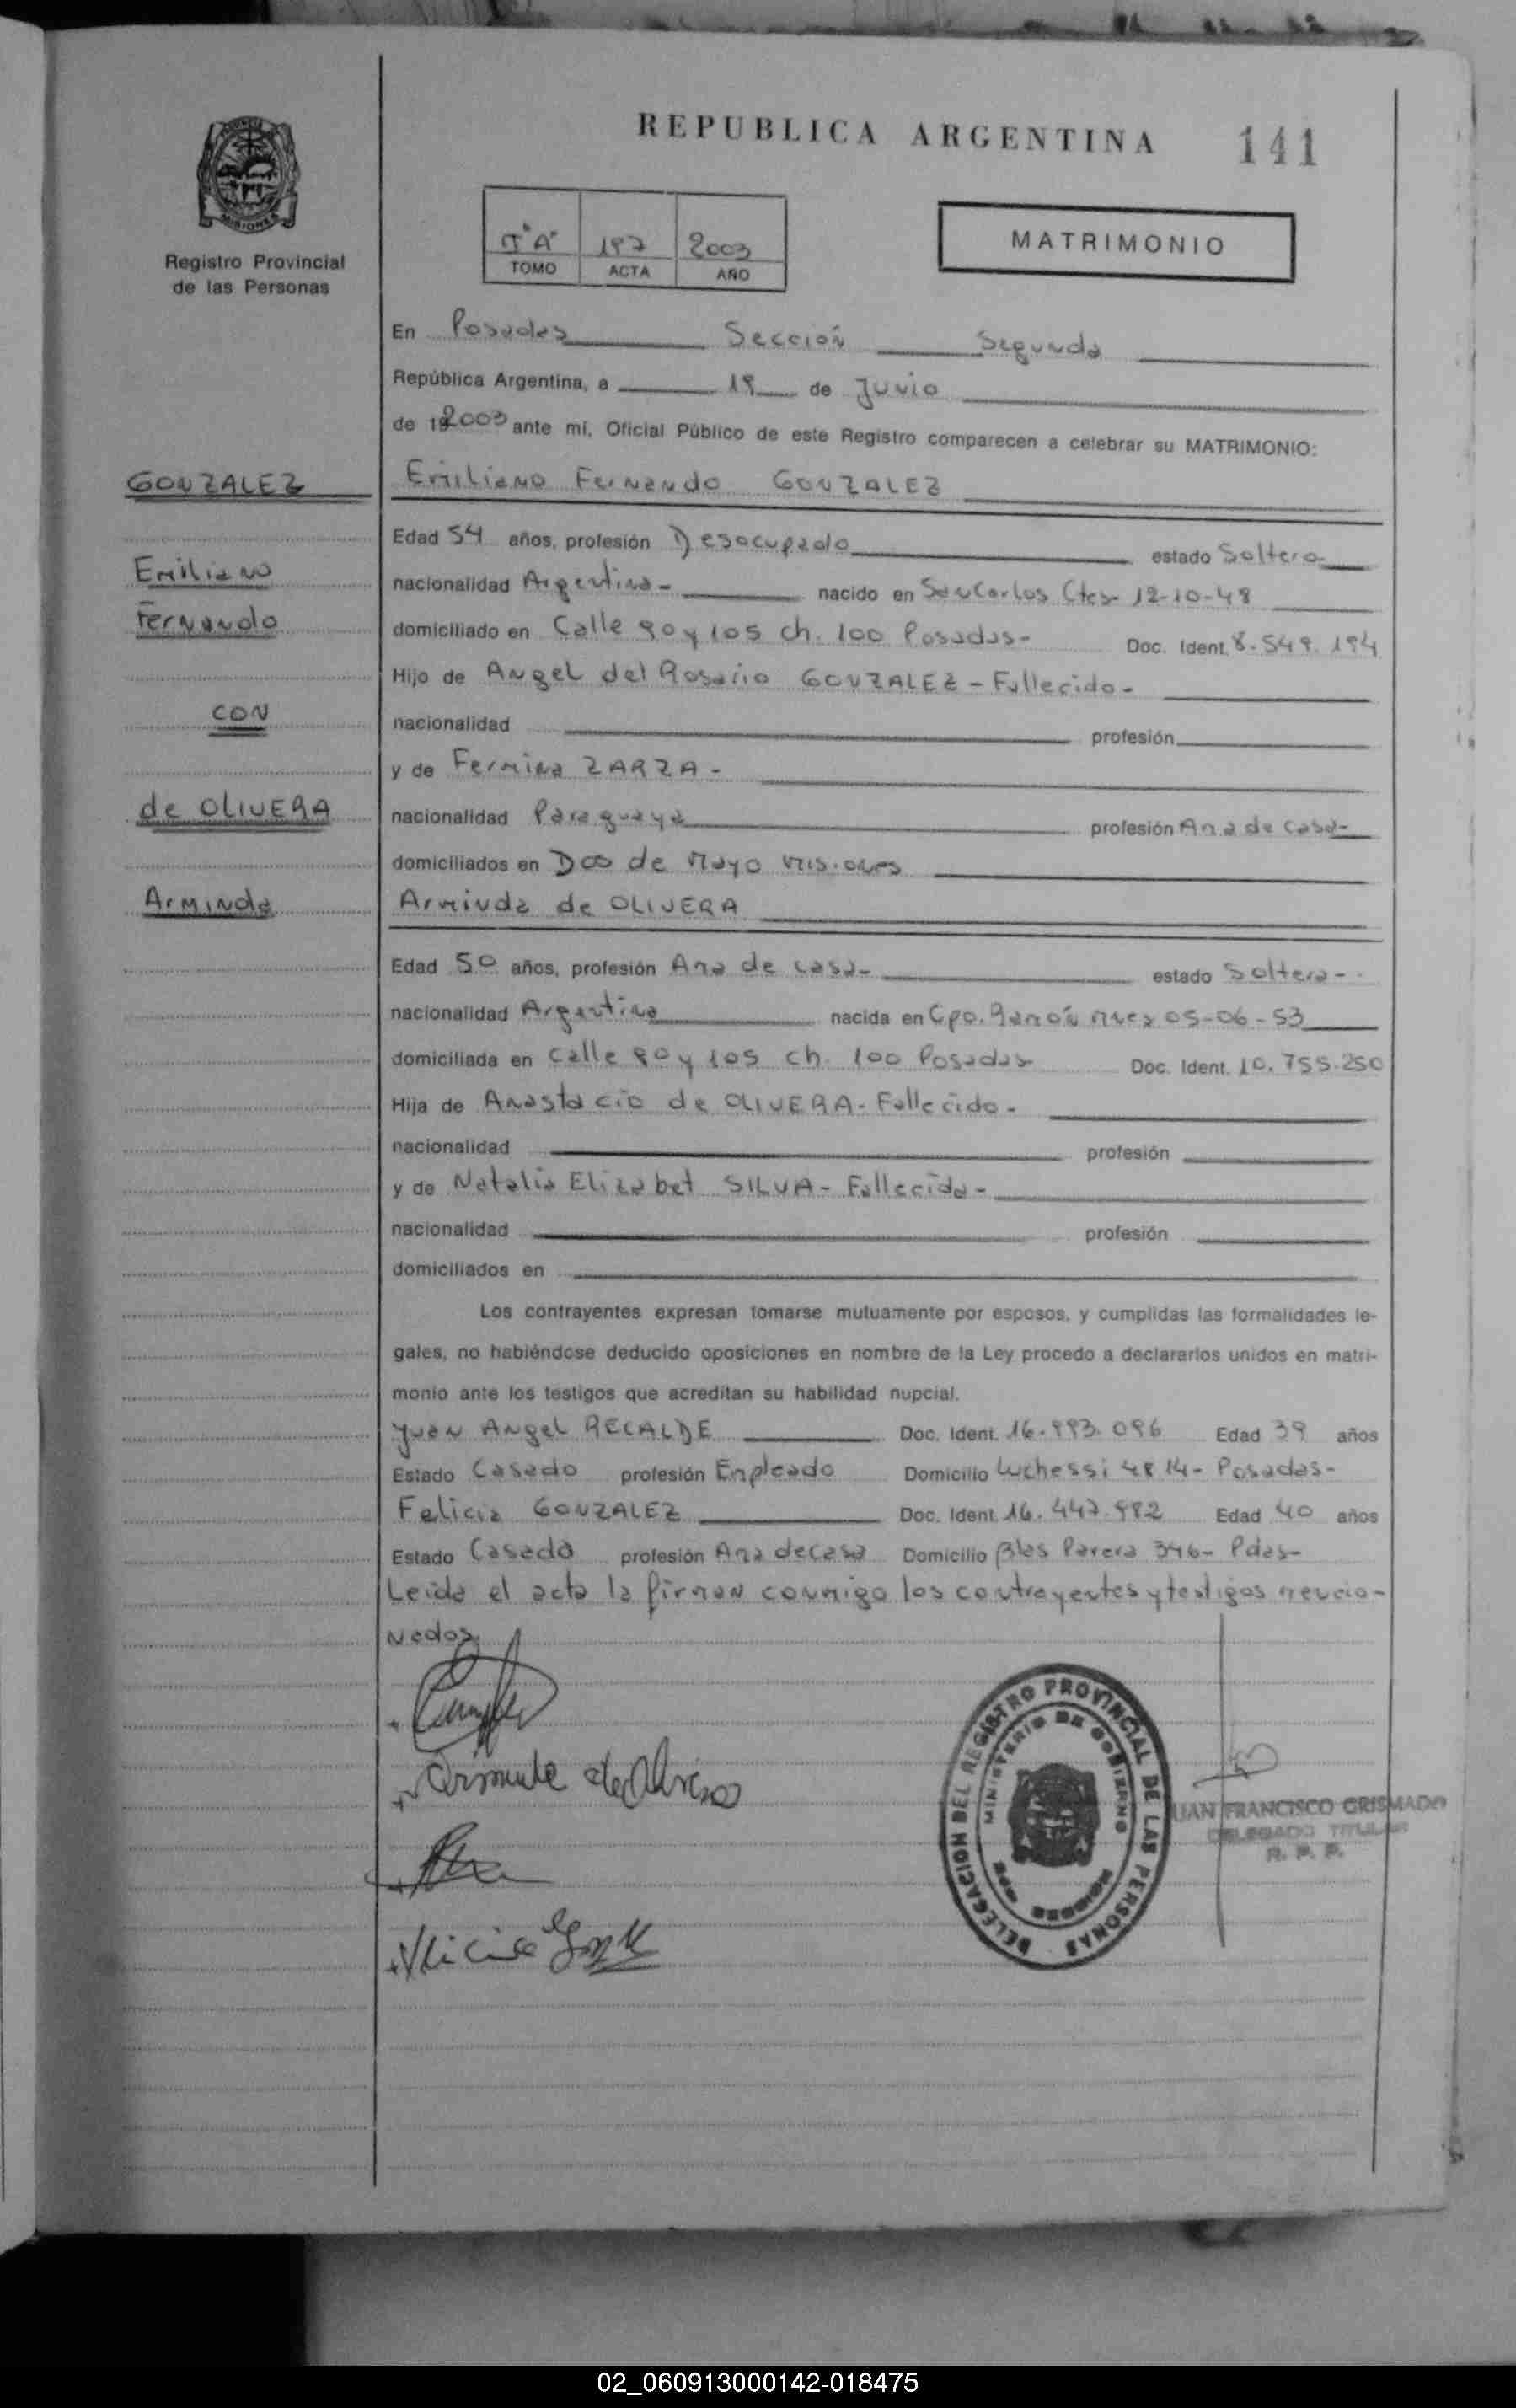 REPUBLICA ARGENTINA 141
PROVINCIA
MISIONES
Registro Provincial
de las Personas
T"A" 2003
TOMO ACTA AÑO
MATRIMONIO
En Posadas Sección Segunda
República Argentina, a de Junio
de 192003 ante mi, Oficial Público de este Registro comparecen a celebrar su MATRIMONIO:
GONZALEZ
Emiliano
Fernando
CON
de OLIVERA
Arminda
Emiliano Fernando GONZALEZ
Edad 54 años, profesión Desocupado estado Soltero
nacionalidad Argentina- nacido en San Carlos Ctes- 12-10-48
domiciliado en Calle 90 y 105 ch. 100 Posadas- Doc. Ident. 8.549.194
Hijo de Angel del Rosario GONZALEZ - Fallecido-
nacionalidad profesión
y de Fermina ZARZA-
nacionalidad Paraguaya profesión Ama de casa-
domiciliados en Dos de Mayo Misiones
Arminda de OLIVERA
Edad 50 años, profesión Ama de casa- estado Soltera-
nacionalidad Argentina nacida en Cpo. Ramón Mnes 05-06-53
domiciliada en Calle 90 y 105 ch. 100 Posadas Doc. Ident. 10.755.250
Hija de Anastacio de OLIVERA- Fallecido-
nacionalidad profesión
y de Natalia Elizabet SILVA- Fallecida-
nacionalidad profesión
domiciliados en
Los contrayentes expresan tomarse mutuamente por esposos, y cumplidas las formalidades le-
gales, no habiéndose deducido oposiciones en nombre de la Ley procedo a declararlos unidos en matri-
monio ante los testigos que acreditan su habilidad nupcial.
Juan Angel RECALDE Doc. Ident. 16.993.096 Edad 39 años
Estado Casado profesión Empleado Domicilio Luchessi 4814- Posadas-
Felicia GONZALEZ Doc. Ident. 16.447.982 Edad 40 años
Estado Casada profesión Ama de casa Domicilio Blas Parera 346- Pdas-
Leida el acta la firman conmigo los contrayentes y testigos mencio-
nados
Arminda de Olivera
DELEGACION DEL REGISTRO PROVINCIAL DE LAS PERSONAS
MINISTERIO DE GOBIERNO
MISIONES
JUAN FRANCISCO GRISMADO
DELEGADO TITULAR
R. P. P.
02_060913000142-018475